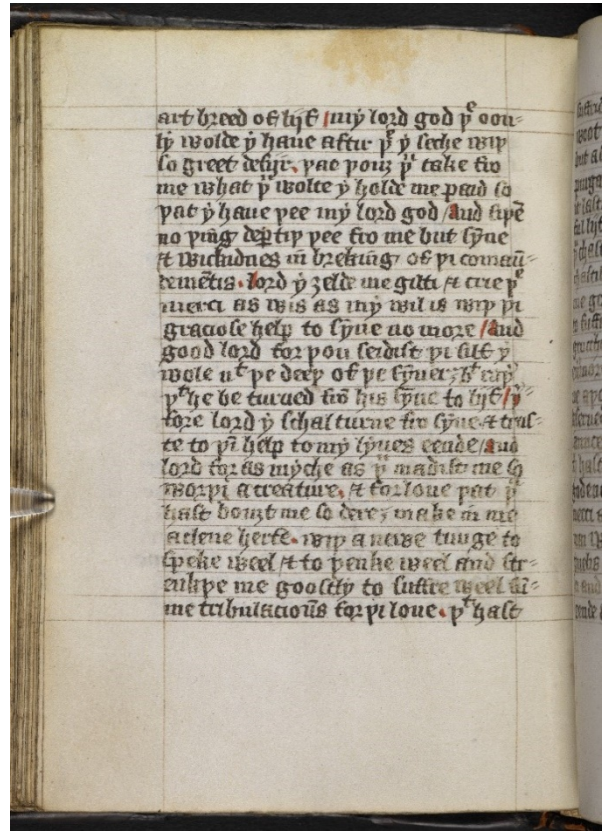 art breed of lijf / my lord god þͤ oon-
ly wolde y haue aftir þͭ y seche wiþ
so greet desijr. þat þouȝ þͧ take fro
me what þͧ wolte y holde me paid so
þat y haue þee my lord god / And siþē
no þing deꝑtiþ þee fro me but synne
& wickidnes in breking of þi comaū-
demētis. lord y ȝelde me gilti & crie þͤ
merci as wis as my wil is wiþ þi
graciose help to syne no more / And
good lord for þou seidist þi silf y
wole nͭ þe deeþ of þe syner; but
þͭ he be turned fro his syne to lijf / þͬ
fore lord y schal turne fro syne & trus-
te to þi help to my lyues eende / and
lord for as myche as þͧ madist me so
worþi a creature. & for loue þat þͧ
hast bouȝt me so dere; make in me
a clene herte. wiþ a newe tunge to
speke weel / & to þenke weel and str-
enkþe me goostly to suffre weel
me tribulaciouns for þi loue. þͭ hast